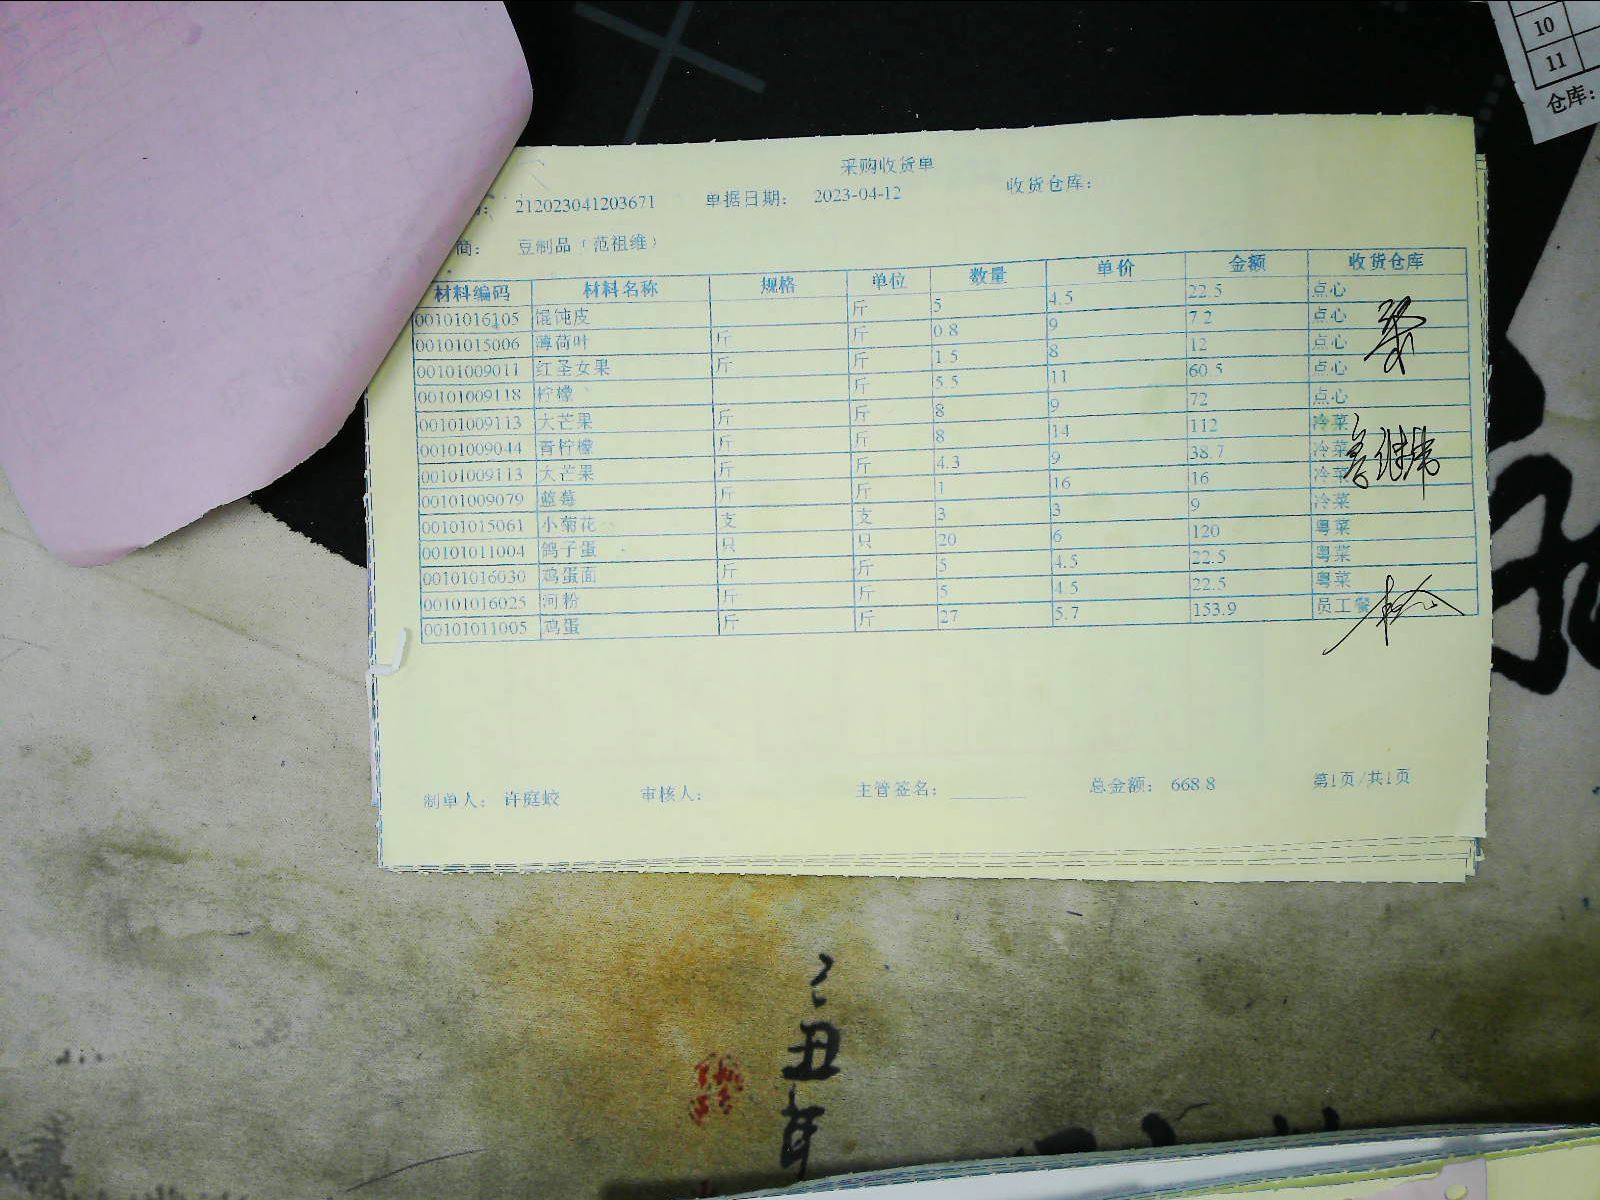 10
11
仓库:
采购收货单
212023041203671 单据日期: 2023-04-12 收货仓库:
简: 豆制品(范祖维)
材料编码 材料名称 规格 单位 数量 单价 金额 收货仓库
00101016105 馄饨皮 斤 5 4.5 22.5 点心
00101015006 薄荷叶 斤 斤 0.8 9 7.2 点心
00101009011 红圣女果 斤 斤 1.5 8 12 点心
00101009118 柠檬 斤 5.5 11 60.5 点心
00101009113 大芒果 斤 斤 8 9 72 点心
00101009044 青柠檬 斤 斤 8 14 112 冷菜
00101009113 大芒果 斤 斤 4.3 9 38.7 冷菜
00101009079 蓝莓 斤 斤 1 16 16 冷菜
00101015061 小菊花 支 支 3 3 9 冷菜
00101011004 鸽子蛋 只 只 20 6 120 粤菜
00101016030 鸡蛋面 斤 斤 5 4.5 22.5 粤菜
00101016025 河粉 斤 斤 5 4.5 22.5 粤菜
00101011005 鸡蛋 斤 斤 27 5.7 153.9 员工餐
制单人: 许庭蛟 审核人: 主管签名: 总金额: 668.8 第1页/共1页
丑
年